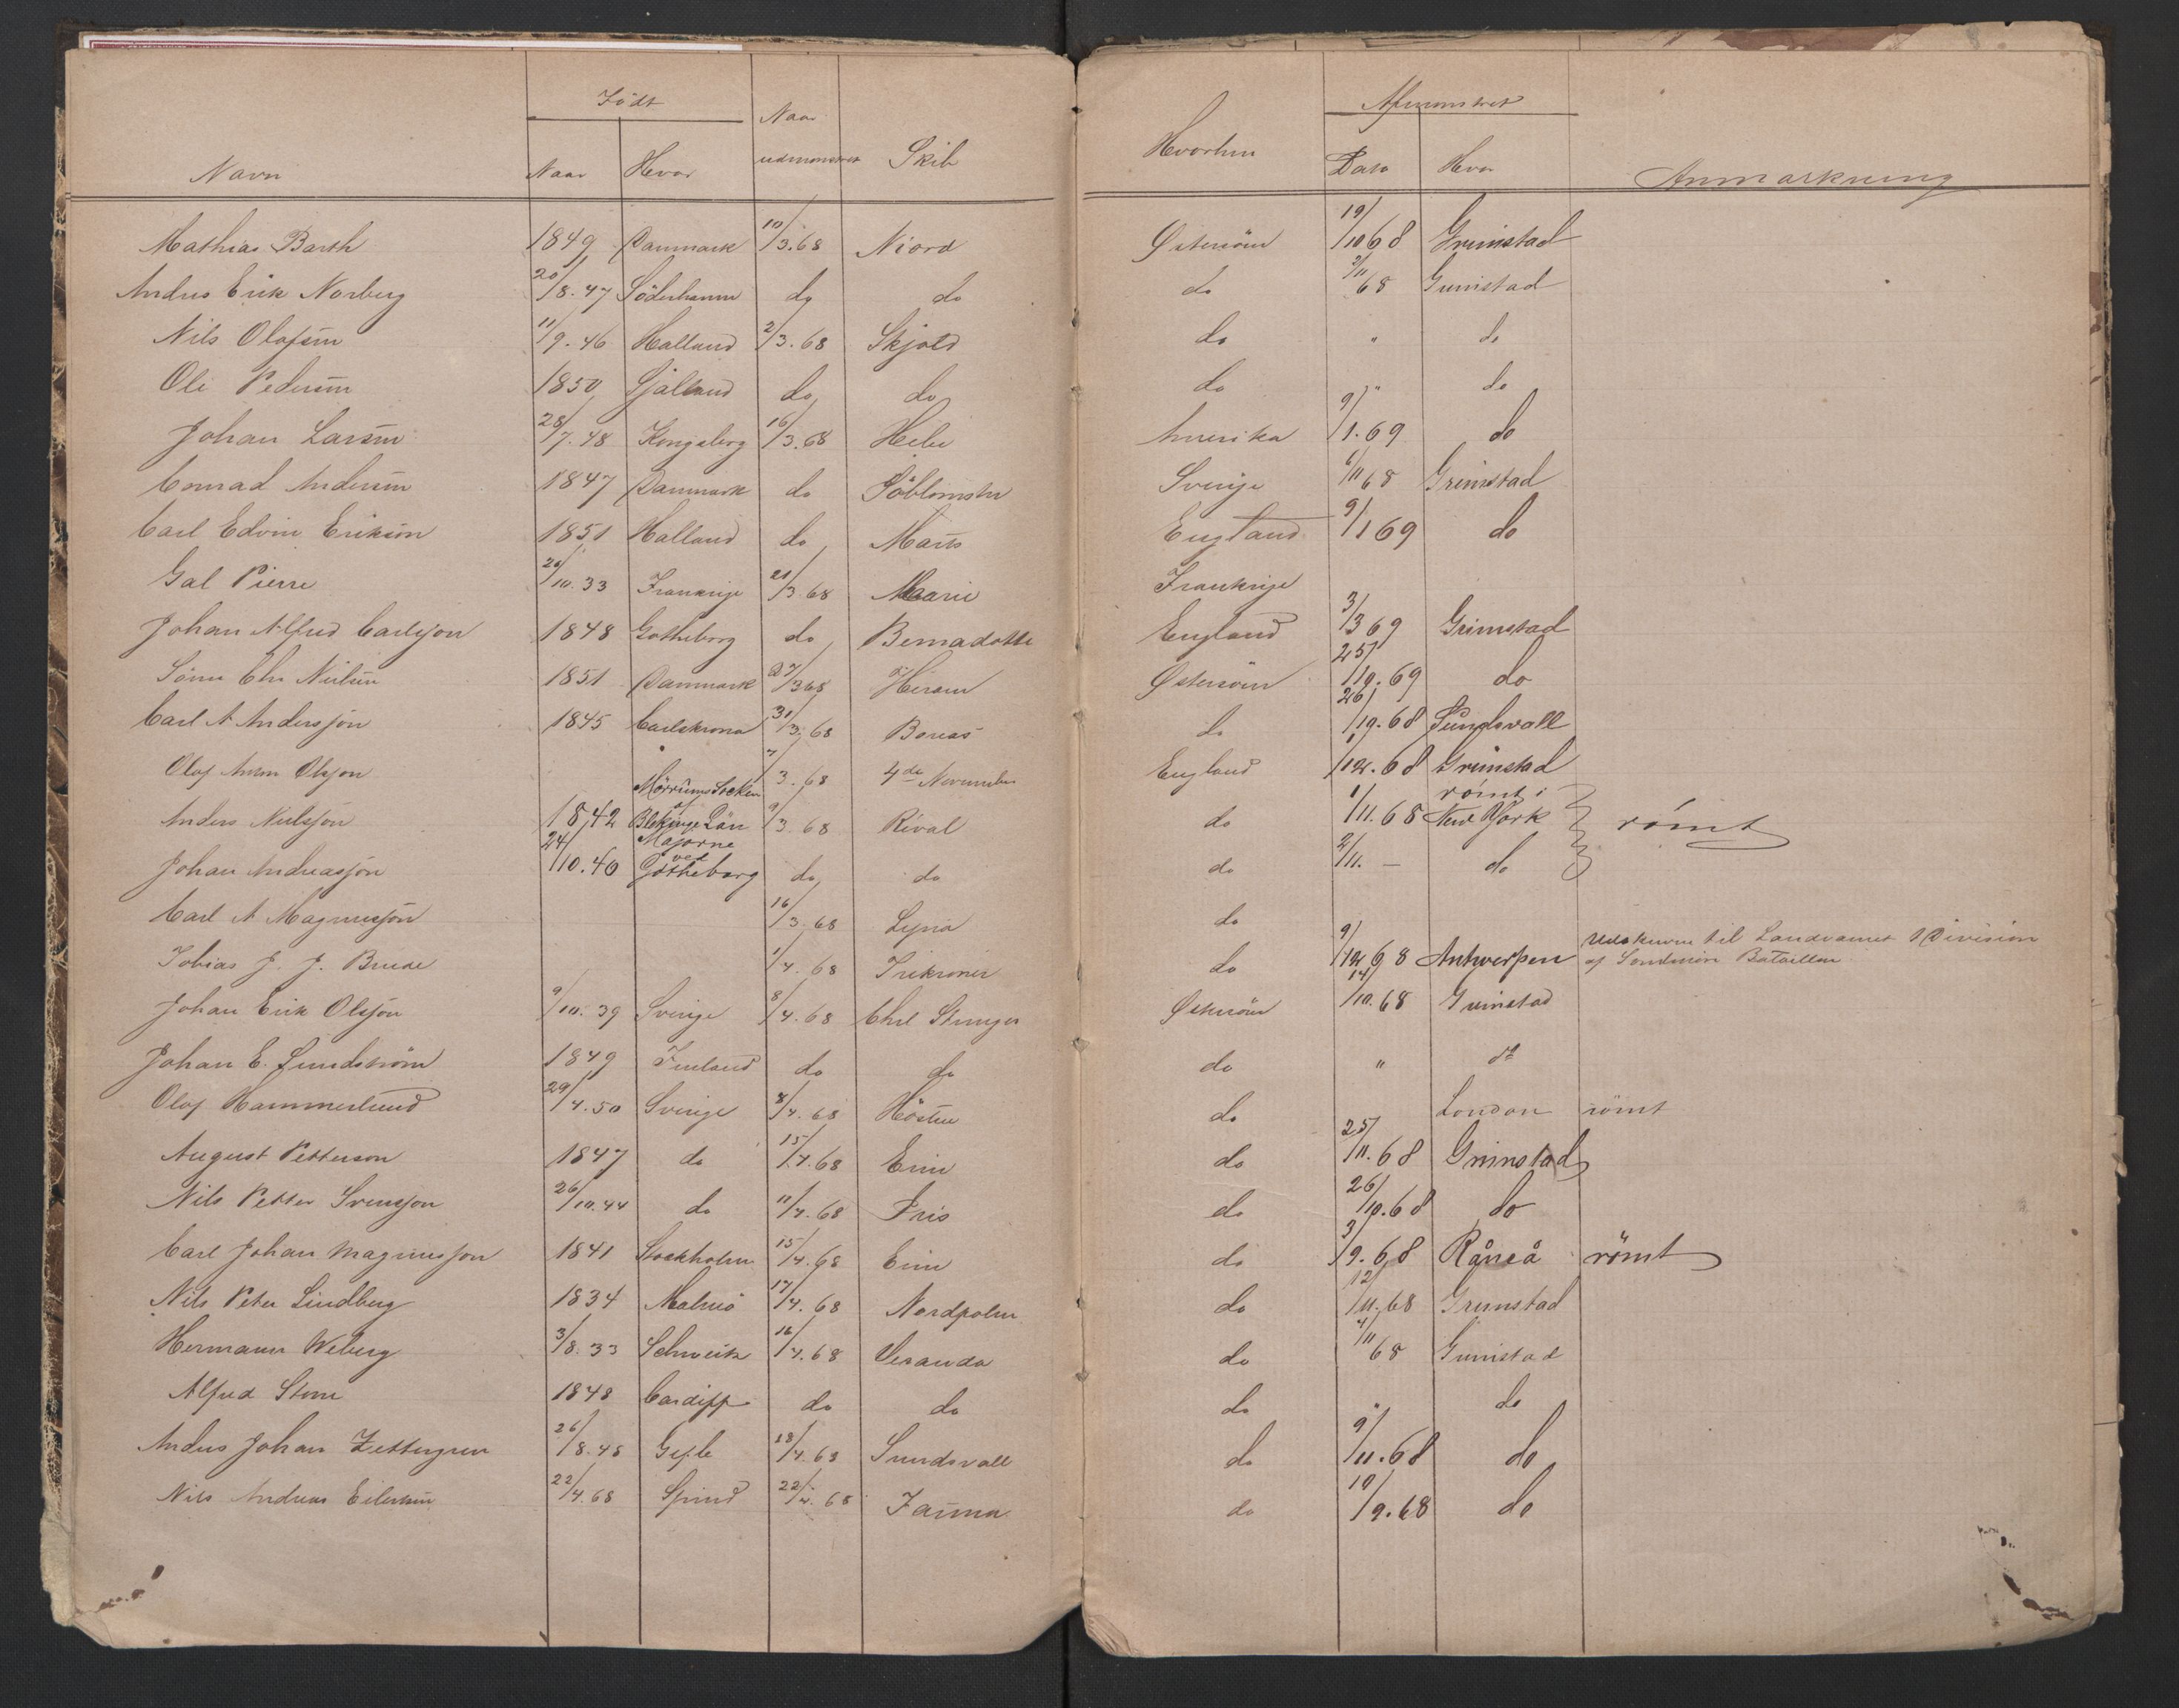 Født Naar Afmønstret
Navn Naar Hvor udmønstret Skib Hvorhen Dato Hvor Anmærkning
Mathias Barth 1849 Danmark 10/3.68 Niord Østersöen 19/10 68 Grimstad
Andres Erik Norberg 20/8.47 Söderhamn do do do 2/11 68 Grimstad
Nils Olofsen 11/9.46 Halland 2/3.68 Skjold do " do
Ole Pedersen 1850 Sjælland do do do " do
Johan Larsen 28/7.48 Kongsberg 16/3.68 Hebe Amerika 9/1.69 do
Conrad Andersen 1847 Danmark do Söblomsten Sverige 6/11 68 Grimstad
Carl Edvin Erikson 1851 Halland do Mars England 9/1 69 do
Gal Pierre 26/10.33 Frankrige 21/3.68 Marie Frankrige
Johan Alfred Carlsson 1848 Gotheborg do Bernadotte England 3/3 69 Grimstad
Sören Chr Nielsen 1851 Danmark 27/3 68 Hiram Østersöen 25/10.69 do
Carl A Andersson 1845 Carlskrona 31/3.68 Boreas do 26/10.68 Sundsvall
Olof Olsson 7/3.68 4de November England 1/12.68 Grimstad
Anders Neilsson 1842 Mörrums Socken af Blekinge Län 9/3.68 Rival do 1/11.68 römt i New York römt
Johan Andreasson 24/10.40 Majorne ved Götheborg do do do 2/11. — do
Carl A Magnusson 16/3.68 Lyna do
Tobias J. J. Bruse 1/4.68 Trekroner do 9/12 68 Antwerpen Udskreven til Landværnet 1 Division
af Bataillon
Johan Erik Olsson 9/10.39 Sverige 8/4.68 Chrl Stenger Østersöen 14/10.68 Grimstad
Johan E. Sundström 1849 Finland do do do " do
Olof Hammerlund 29/4.50 Sverige 8/4.68 Hösten do London römt
August Petterson 1847 do 15/4.68 Erin do 25/11.68 Grimstad
Nils Petter Svensson 26/10.44 do 11/4.68 Iris do 26/10.68 do
Carl Johan Magnusson 1841 Stockholm 15/4.68 Erin do 3/9.68 Råneå römt
Nils Peter Lindberg 1834 Malmö 17/4.68 Nordpolen do 12/11.68 Grimstad
Hermann Weberg 3/8.33 Schweitz 16/4.68 Veranda do 4/11 68 Grimstad
Alfred Stone 1848 Cardiff do do do " do
Anders Johan Zettergren 26/8.48 Gefle 18/4.68 Sundsvall do 9/11.68 do
Nils Andreas Eilertsen 22/4.68 Spind 22/4.68 Fauna do 10/9.68 do